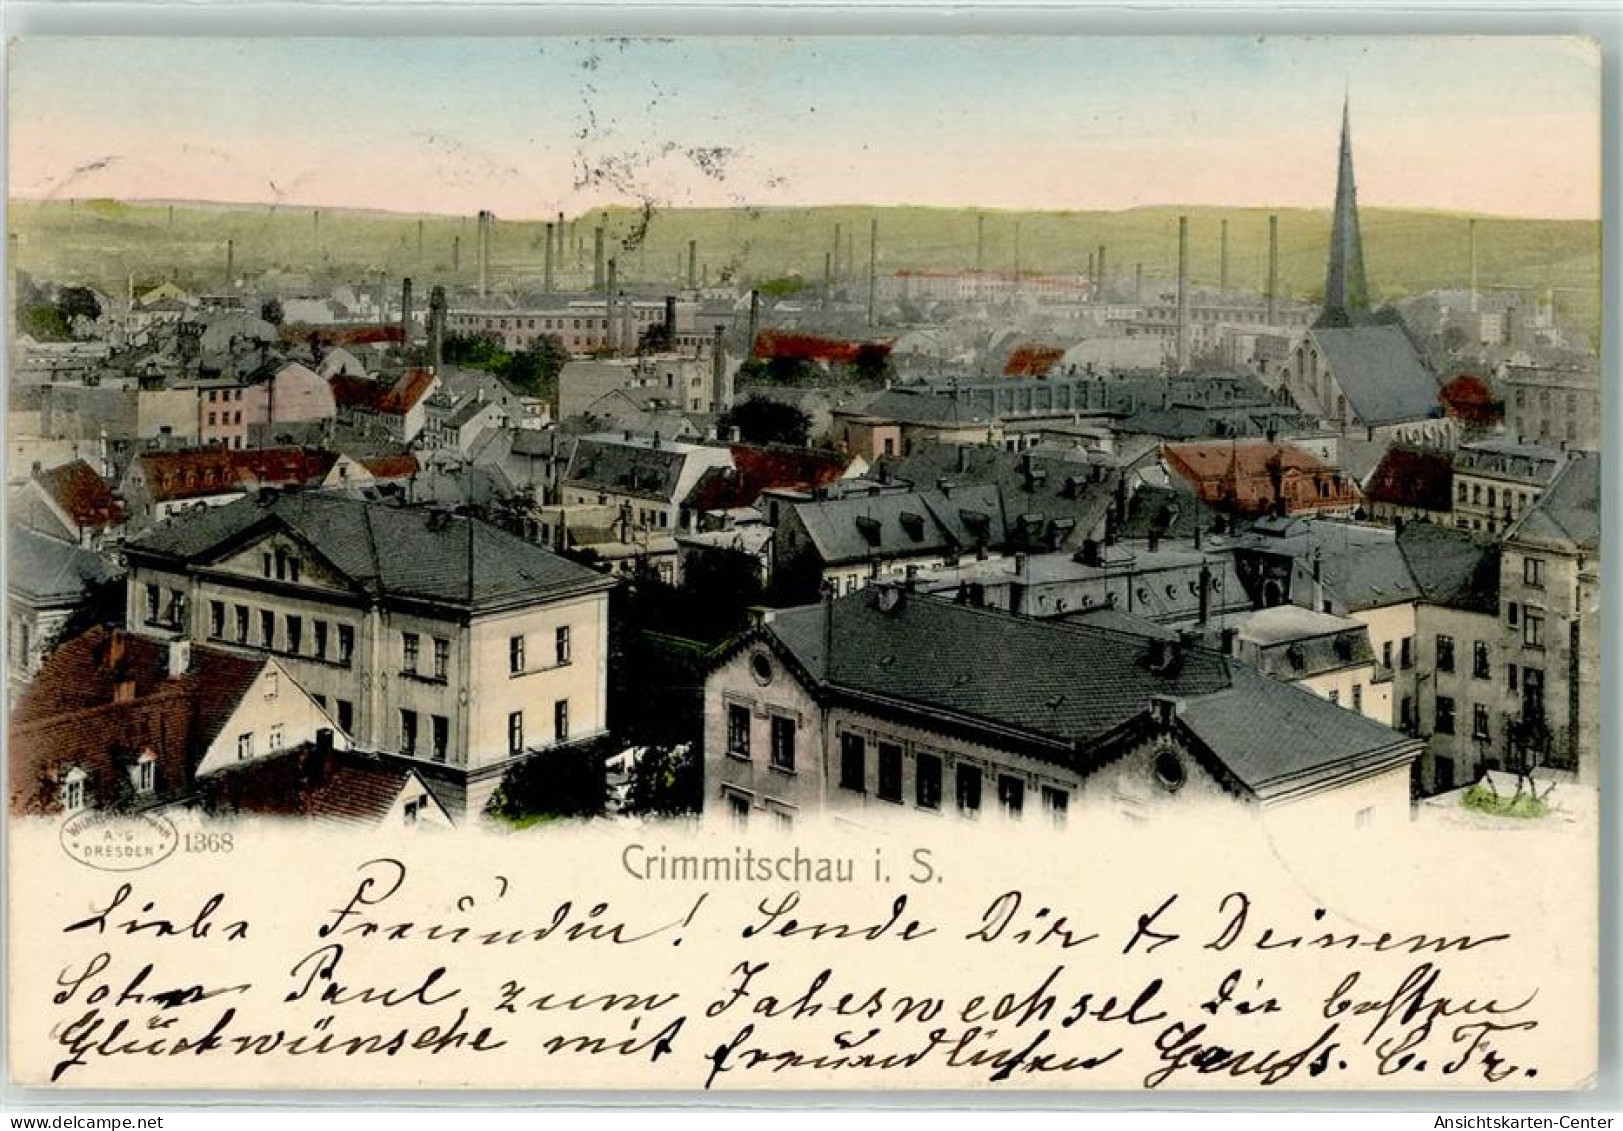 WILHELM HOFFMANN
A.-G.
* DRESDEN *
1368
Crimmitschau i. S.
Liebe Freundin! Sende Dir & Deinem
Sohn Paul zum Jahreswechsel die besten
Glückwünsche mit freundlichen Gruss. C. Fr.
Ansichtskarten-Center